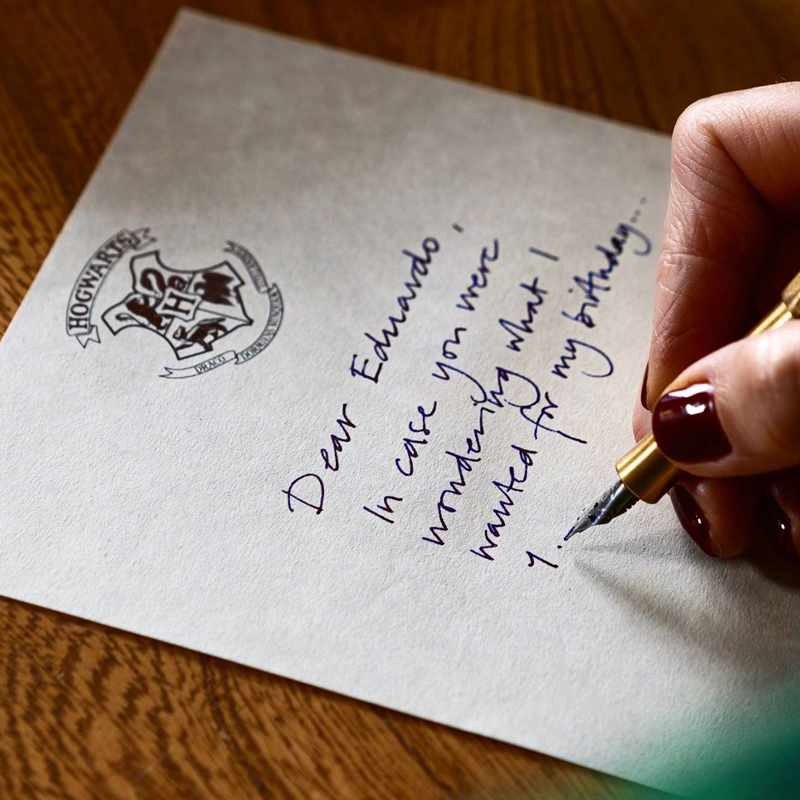 HOGWARTS
H
DRACO DORMIENS NUNQUAM
Dear Eduardo,
In case you were
wondering what I
wanted for my birthday...
1.